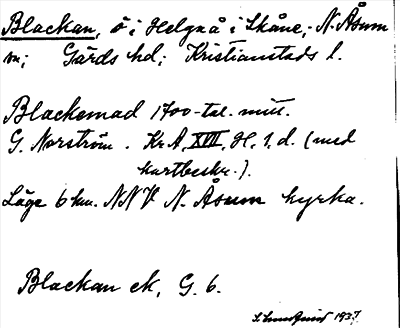 Blackan, ö i Helgeå i Skåne, N. Åsum
sn; Gärds hd; Kristianstads l.
Blackemad 1700-tal. mitt.
G. Norström. Kr. A. XVIII, H. 1. d. (med
kartbeskr.).
Läge 6 km. NNV N. Åsum kyrka.
Blackan ek, G. 6.
1937